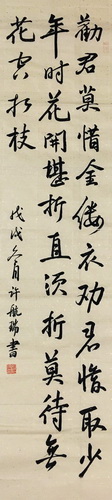 劝君莫惜金缕衣劝君惜取少
年时花開堪折直须折莫待無
花空折枝
戊戌冬月许航瑞書